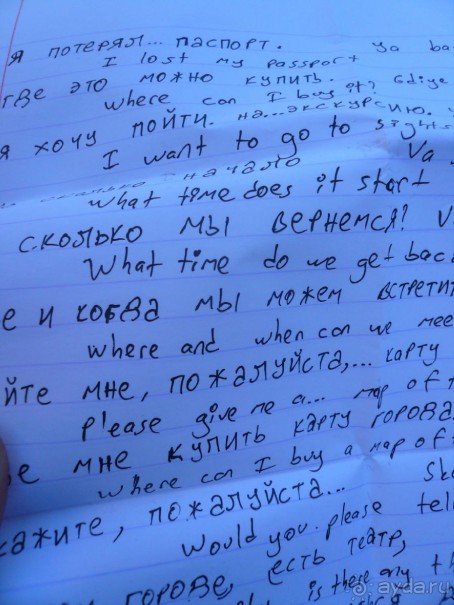 я потерял... паспорт. ya
I lost my passport
где это можно купить.
where can I buy it? Gdiye
я хочу пойти. на...экскурсию.
I want to go to
сколько начало Va
what time does it start
сколько мы вернемся? V
What time do we get bac
е и когва мы можем встрети
where and when can we mee
йте мне, пожалуйста,... карту
please give me a... map of
е мне купить карту города
where can I buy a map of
кажите, пожалуйста... Sk
Would you please tel
городе, есть театр,
is there any th
ayda.ru